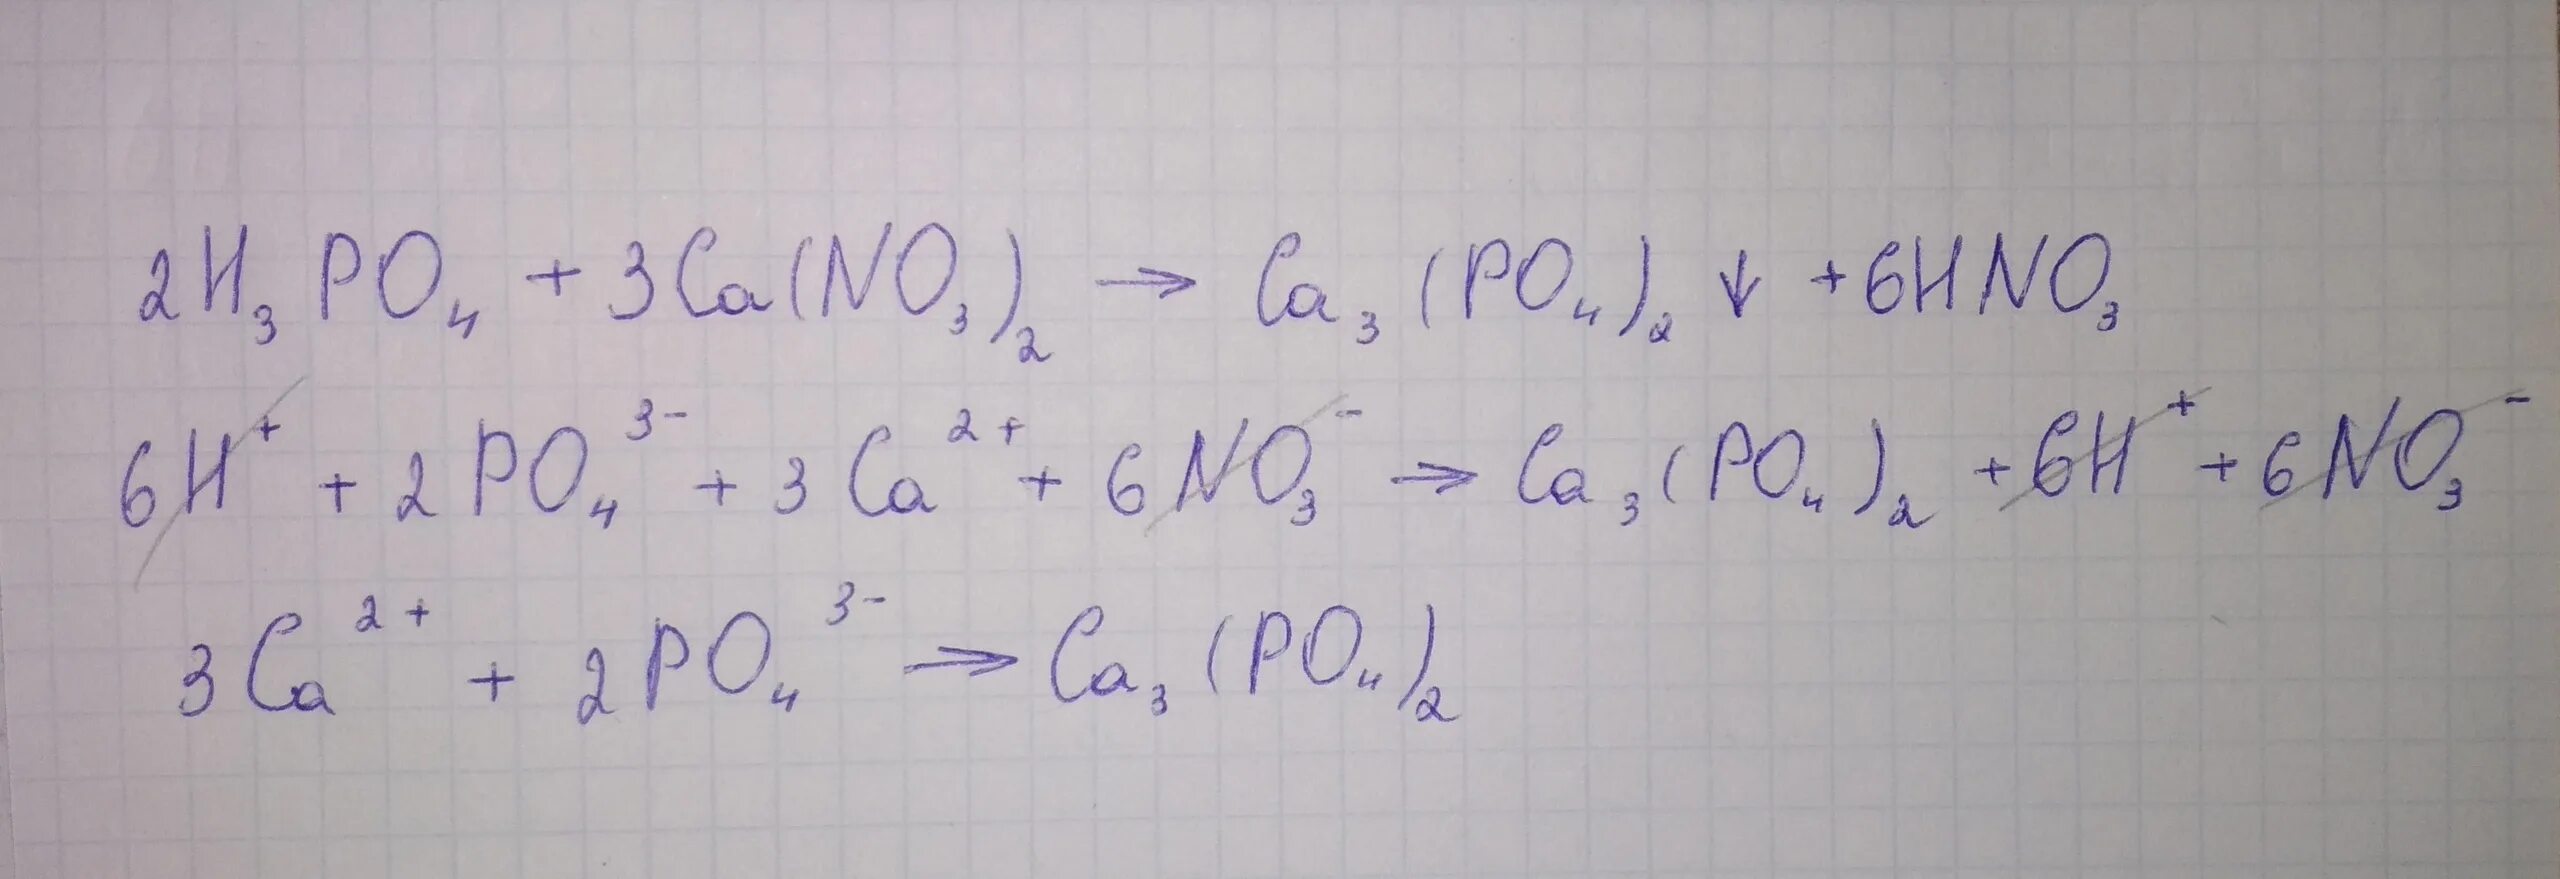 2H₃PO₄ + 3Ca(NO₃)₂ → Ca₃(PO₄)₂↓ + 6HNO₃
6H⁺ + 2PO₄³⁻ + 3Ca²⁺ + 6NO₃⁻ → Ca₃(PO₄)₂ + 6H⁺ + 6NO₃⁻
3Ca²⁺ + 2PO₄³⁻ → Ca₃(PO₄)₂